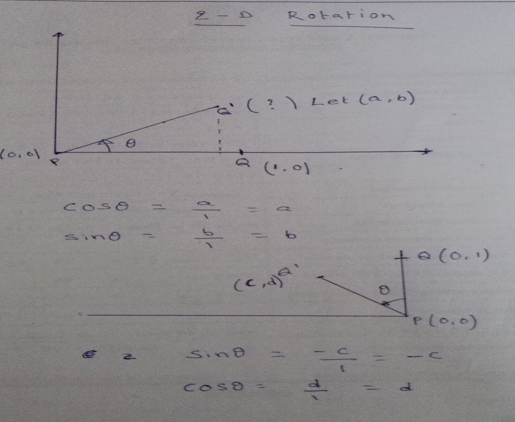 2-D Rotation
Q' (?) Let (a,b)
θ
(0,0) P
Q (1,0)
cosθ = a/1 = a
sinθ = b/1 = b
Q (0,1)
(c,d) Q'
θ
P(0,0)
sinθ = -c/1 = -c
cosθ = d/1 = d